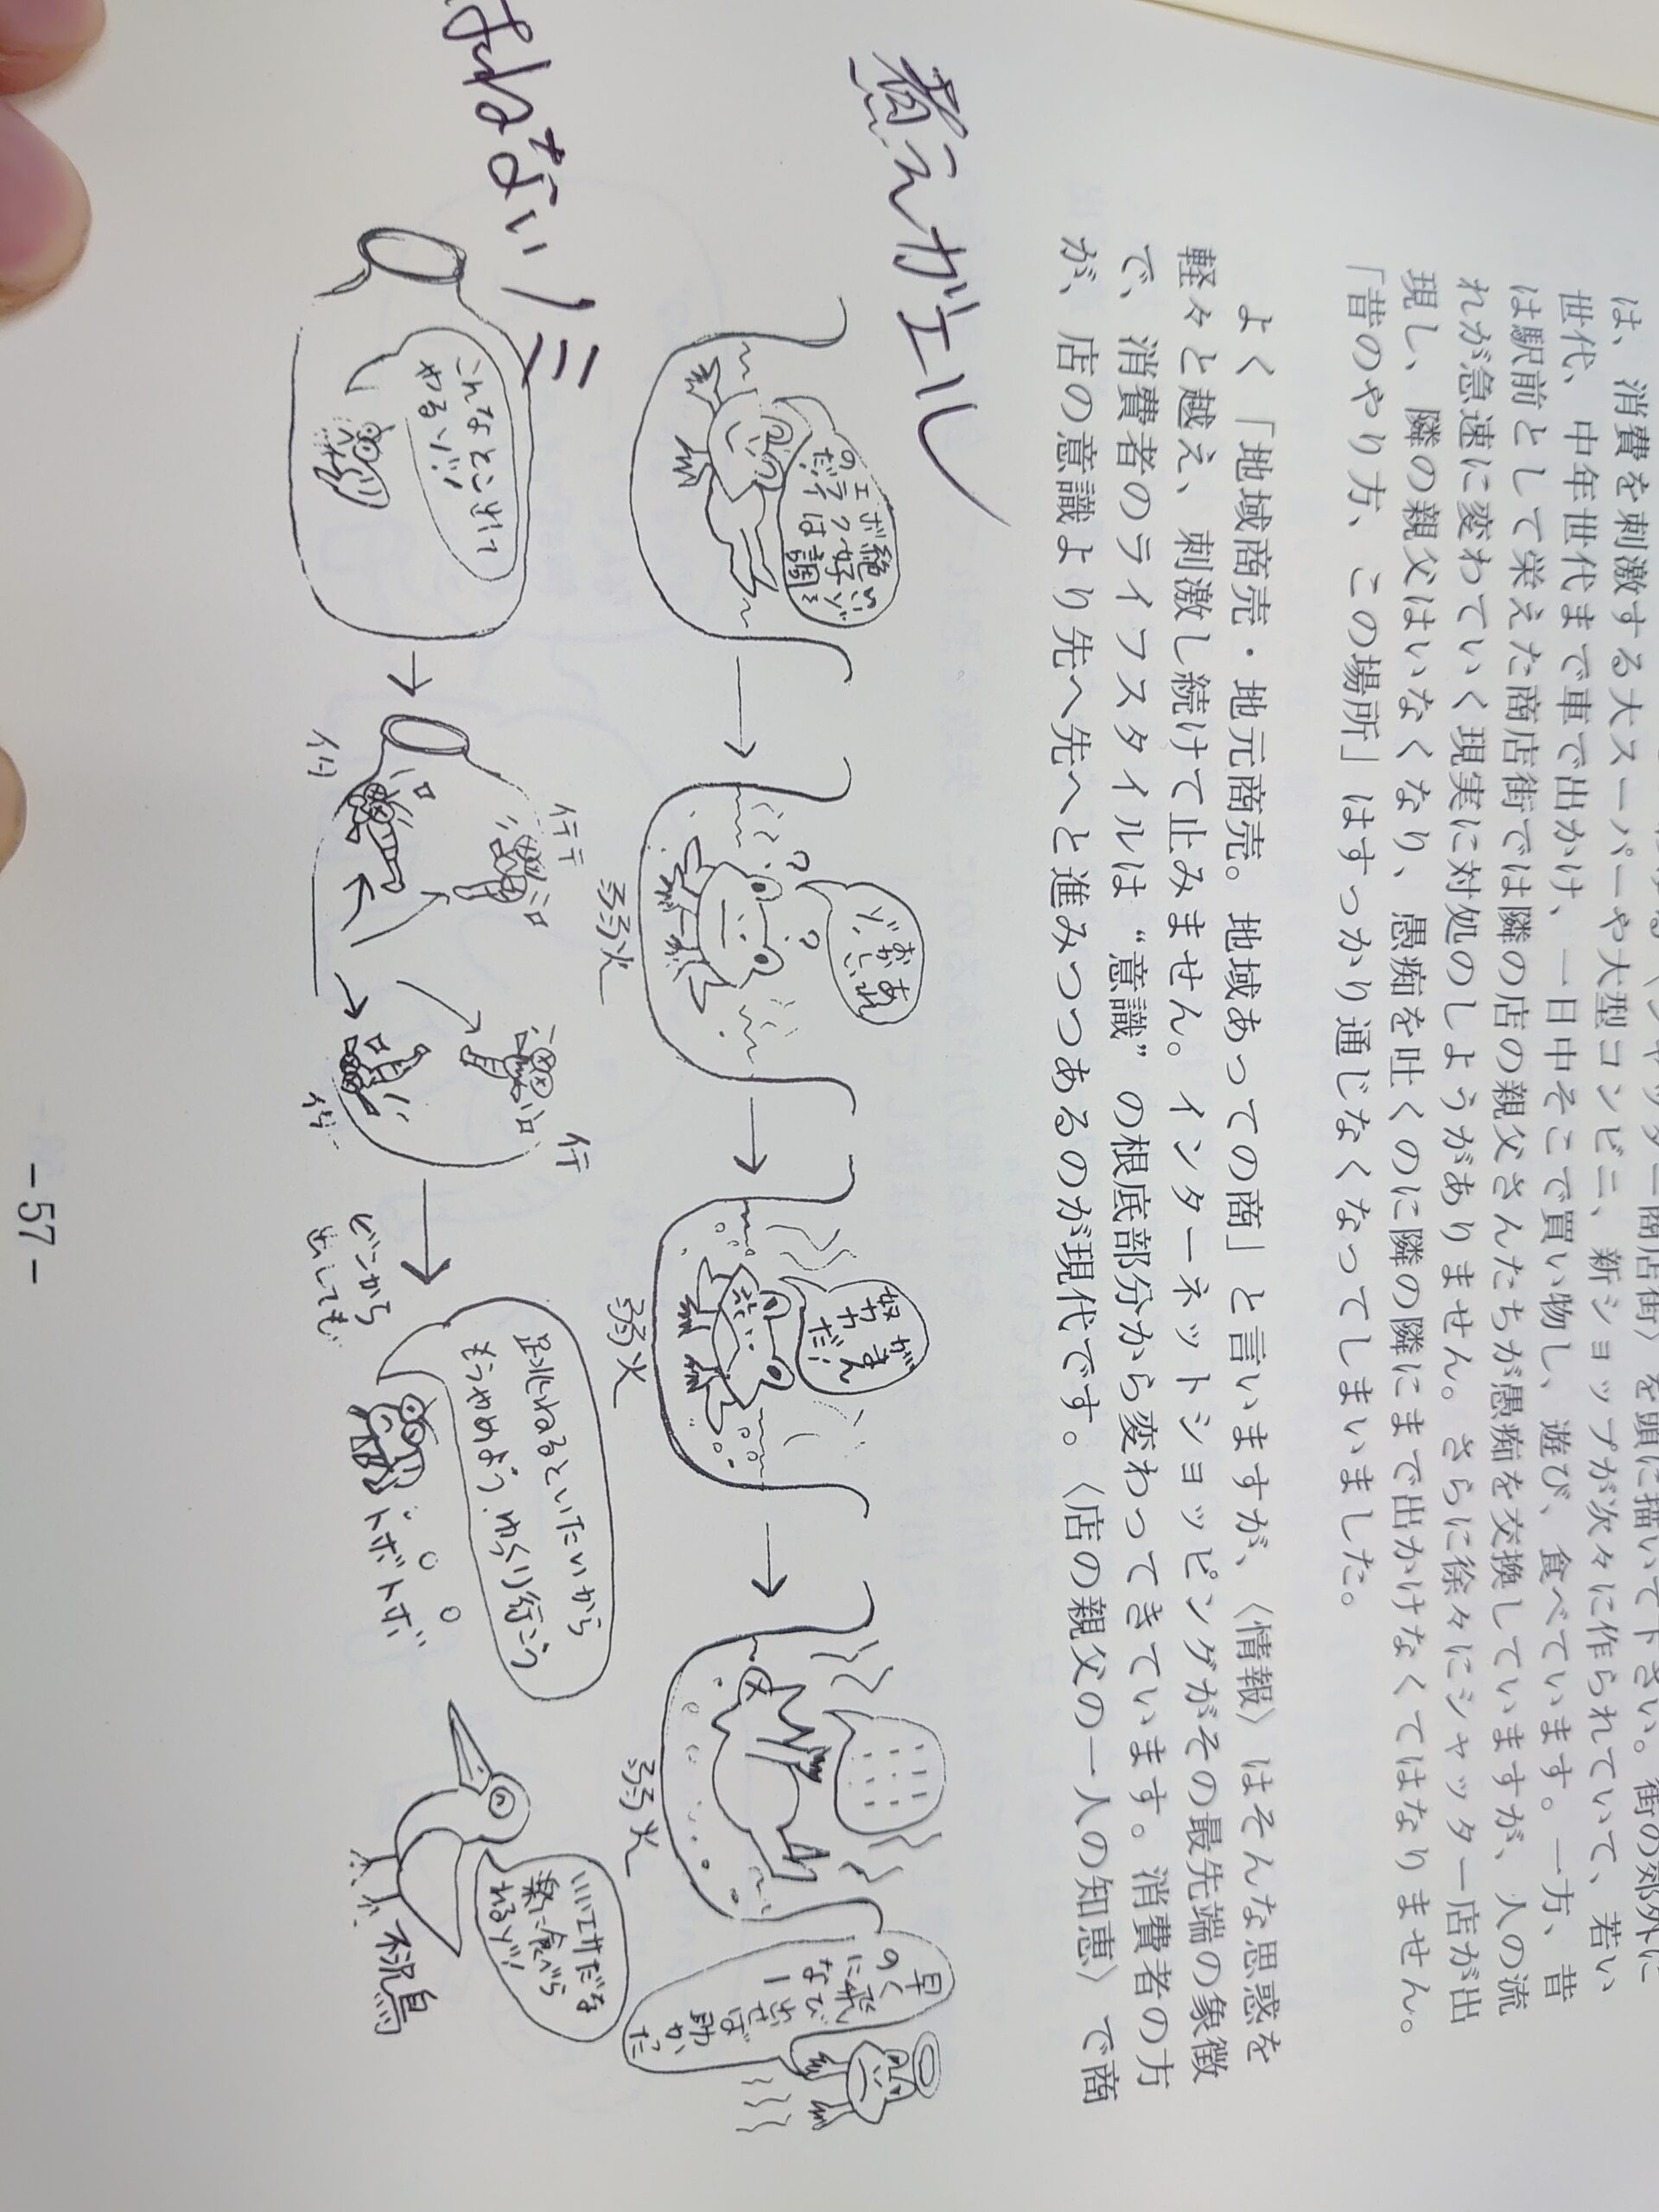 は、消費を刺激する大スーパーや大型コンビニ、新ショップが次々に作られていて、若い
世代、中年世代まで車で出かけ、一日中そこで買い物し、遊び、食べています。一方、昔
は駅前として栄えた商店街では隣の店の親父さんたちが愚痴を交換していますが、人の流
れが急速に変わっていく現実に対処のしようがありません。さらに徐々にシャッター店が出
現し、隣の親父はいなくなり、愚痴を吐くのに隣の隣にまで出かけなくてはなりません。
「昔のやり方、この場所」はすっかり通じなくなってしまいました。
よく「地域商売・地元商売。地域あっての商」と言いますが、〈情報〉はそんな思惑を
軽々と越え、刺激し続けて止みません。インターネットショッピングがその最先端の象徴
で、消費者のライフスタイルは“意識”の根底部分から変わってきています。消費者の方
が、店の意識より先へ先へと進みつつあるのが現代です。〈店の親父の一人の知恵〉で商
煮えガエル
いいゾ
絶好調!
ボクは
エライ
のだ
あれ
おかしい
ゾ
弱火
がまん
だ!
努力
弱火
弱火
早く
飛び
出せば
助かった
のに
なー
はねないノミ
こんなとこ出て
やるゾ!!
ビンから
出しても
跳ねるといたいから
もうやめよう、ゆっくり行こう
トボトボ
いいエサだな
楽に食べら
れるゾ!
不況鳥
-57-